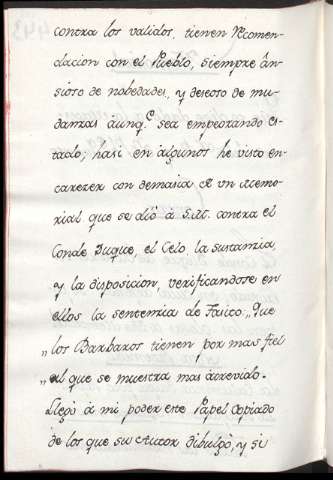 contra los validos, tienen recomen-
dacion con el Pueblo, siempre ân-
sioso de nobedades, y deseoso de mu-
danzas aunq.e sea empeorando es-
tado; hasi en algunos he visto en-
carezer con demasia de un Memo-
rial que se diò â S.M. contra el
Conde Duque, el Celo, la sustanzia
y la disposicion, verificandose en
ellos la sentenzia de Tacito „ Que
„ los Barbaros tienen por mas fiel
„ al que se muestra mas atrevido.
Llegò â mi poder este Papel copiado
de los que su Autor dibulgò, y si